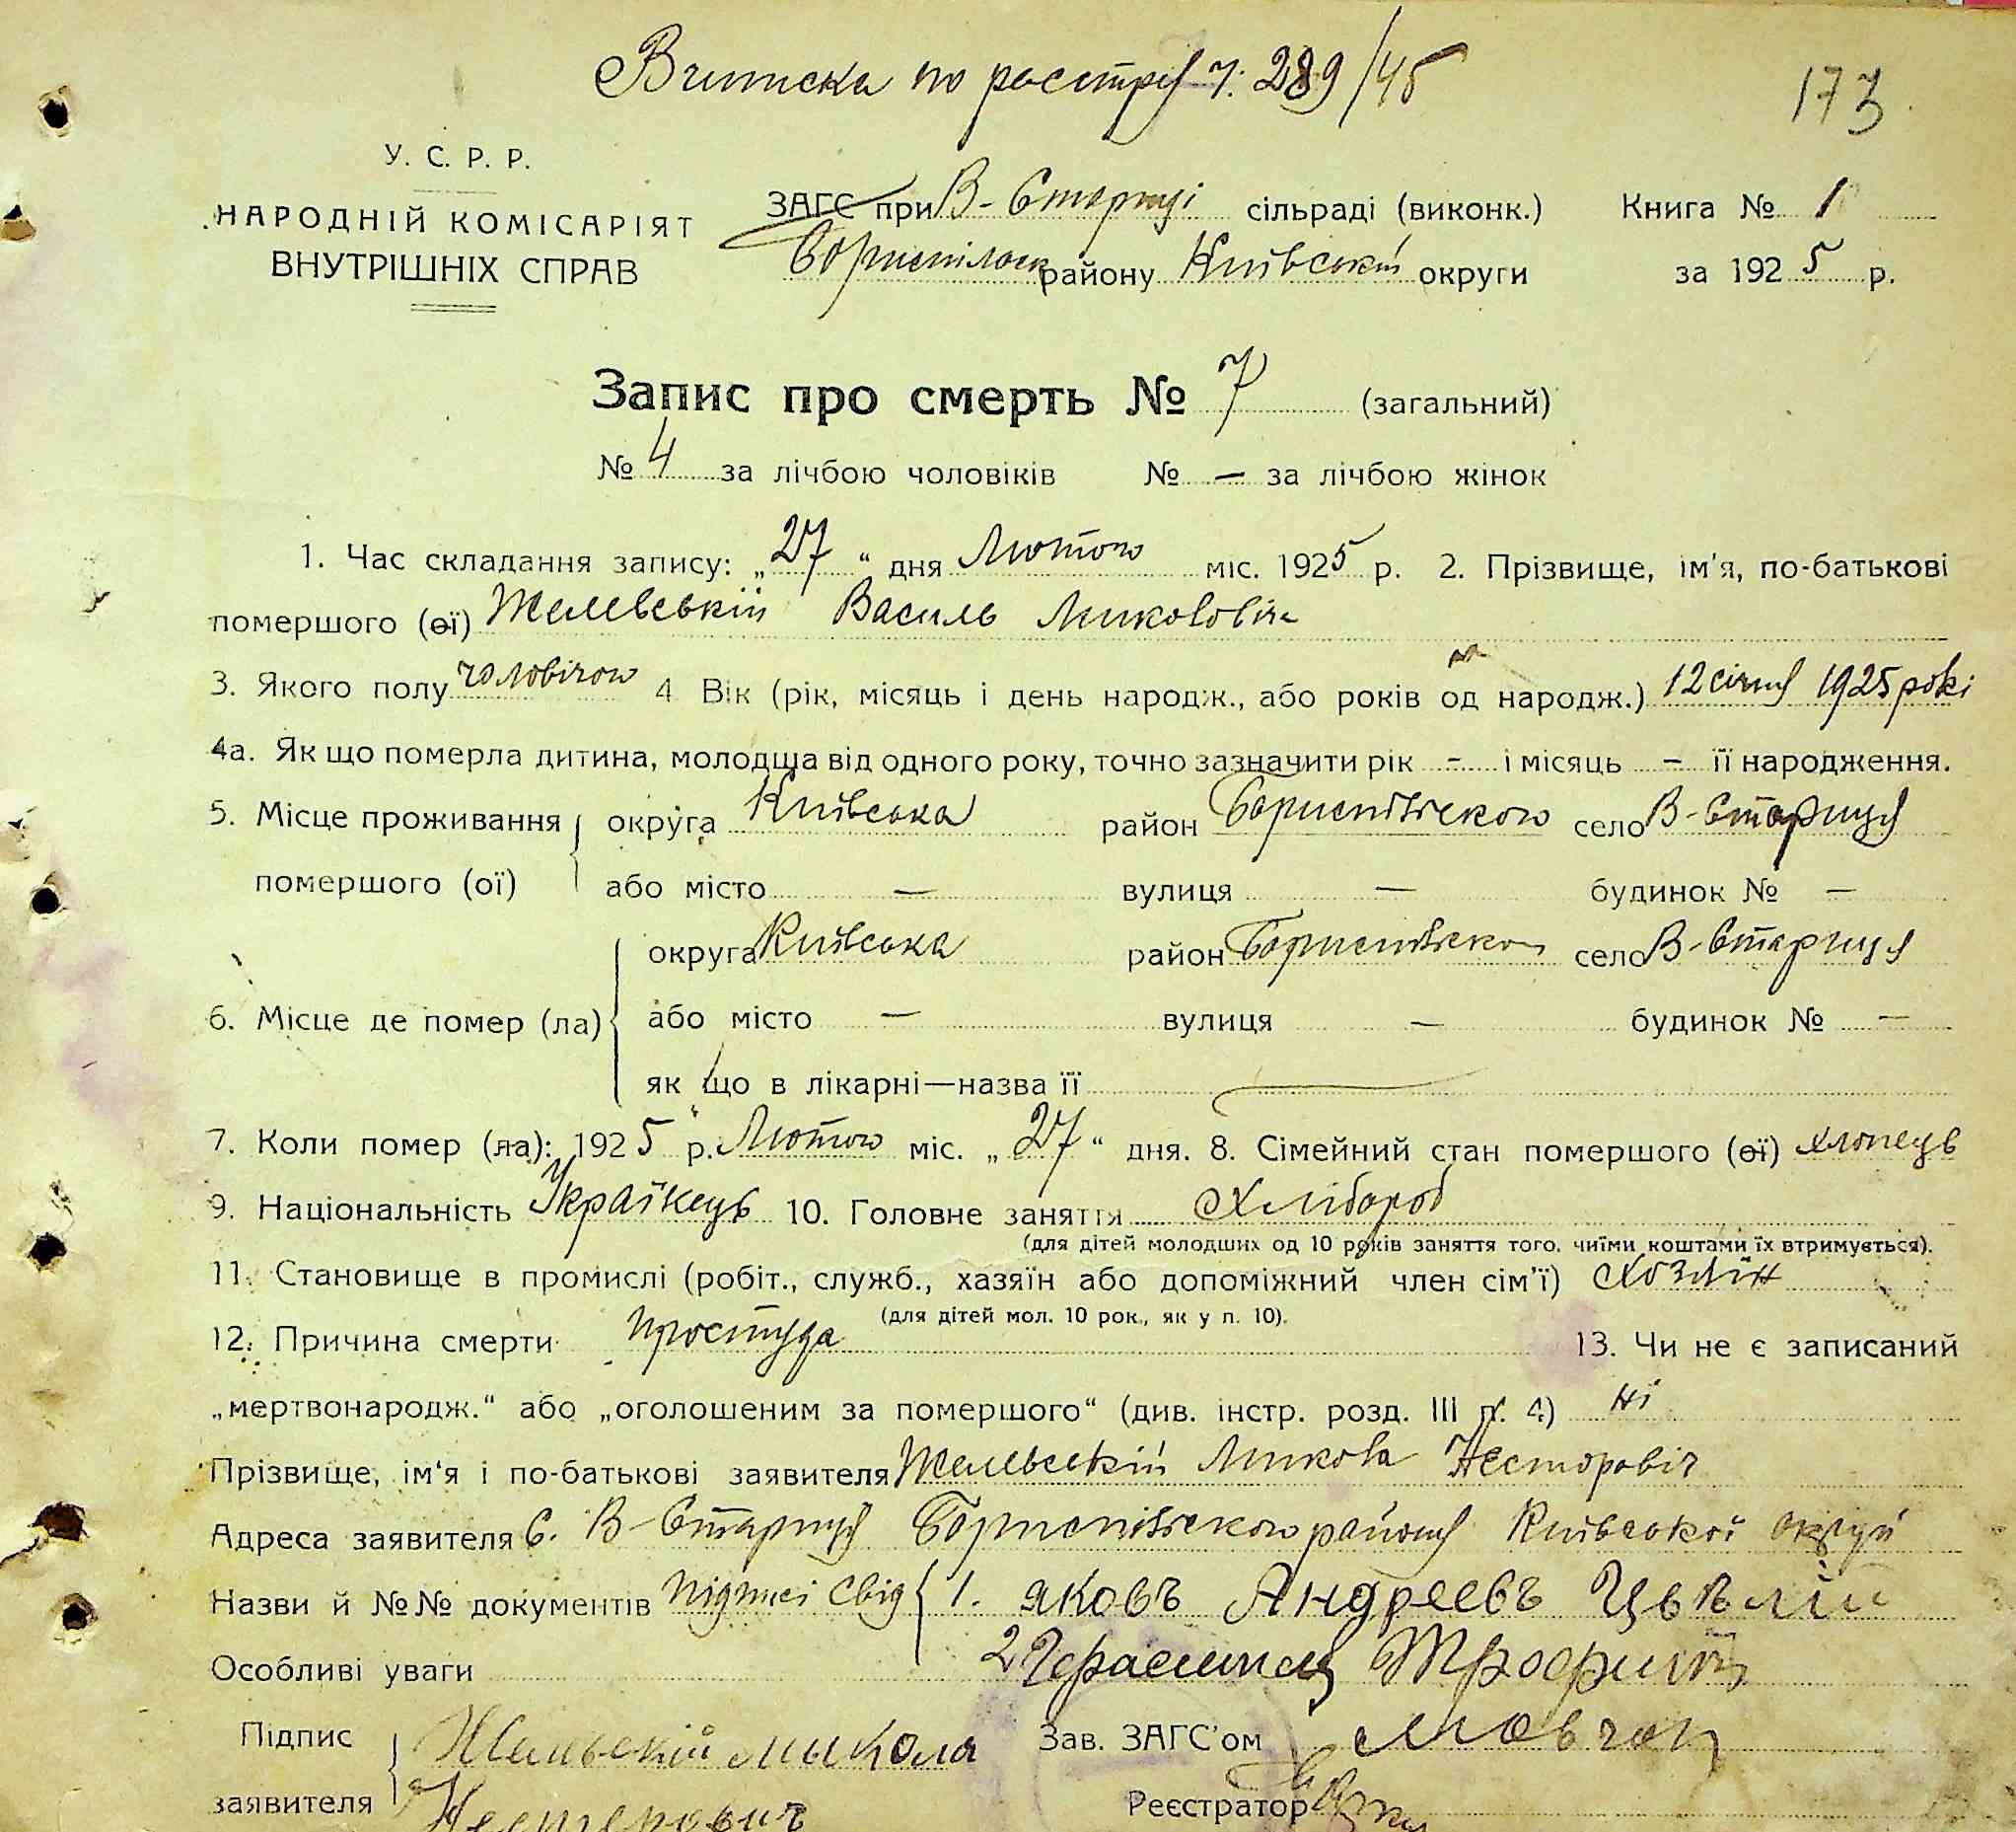 Виписка по реєстру ч. 289/45
173
У. С. Р. Р.
НАРОДНІЙ КОМІСАРІЯТ
ВНУТРІШНІХ СПРАВ
ЗАГС при В-Стариці сільраді (виконк.) Книга № 1
району Київській округи за 1925 р.
Запис про смерть № 7 (загальний)
№ 4 за лічбою чоловіків № — за лічбою жінок
1. Час складання запису: „27“ дня Лютого міс. 1925 р. 2. Прізвище, ім'я, по-батькові
помершого (ої) Желевській Василь Миколовіч
3. Якого полу чоловічого 4 Вік (рік, місяць і день народж., або років од народж.) 12 січня 1925 рокі
4а. Як що померла дитина, молодща від одного року, точно зазначити рік - і місяць - її народження.
5. Місце проживання округа Київська район Бориспільского село В-Стариця
помершого (ої) або місто — вулиця — будинок № —
округа Київська район Бориспільского село В-Стариця
6. Місце де помер (ла) або місто — вулиця — будинок № —
як що в лікарні—назва її —
7. Коли помер (ла): 1925 р. Лютого міс. „27“ дня. 8. Сімейний стан помершого (ої) хлопець
9. Національність Українець 10. Головне заняття Хлібороб
(для дітей молодших од 10 років заняття того, чиїми коштами їх втримується).
11. Становище в промислі (робіт., служб., хазяїн або допоміжний член сім'ї) Хозяїн
(для дітей мол. 10 рок., як у п. 10).
12. Причина смерти простуда 13. Чи не є записаний
„мертвонародж.“ або „оголошеним за помершого“ (див. інстр. розд. III п. 4) ні
Прізвище, ім'я і по-батькові заявителя Желевській Микола Несторовіч
Адреса заявителя С. В-Стариця Бориспільского району Київської округи
Назви й №№ документів підписі Свід 1. яковъ Андреевъ
Особливі уваги 2 Трофим
Підпис микола Зав. ЗАГС'ом Мовчан
заявителя Нестерович Реєстратор